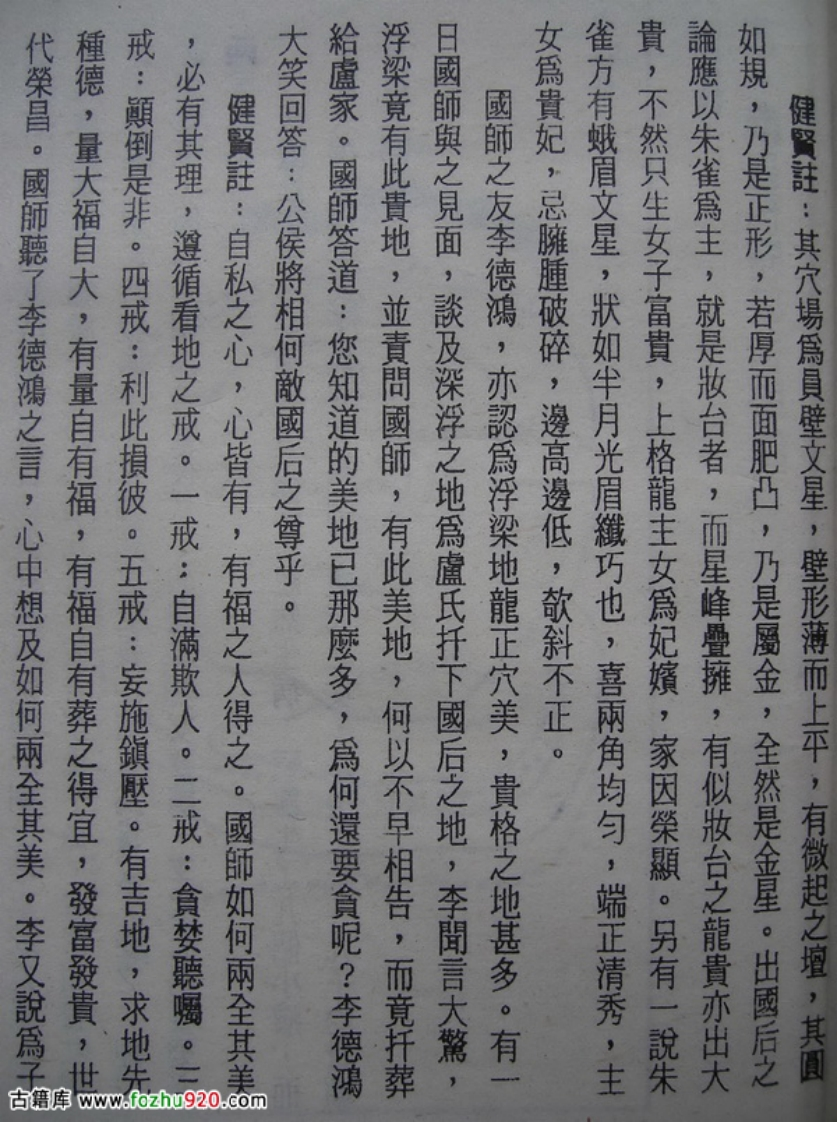 健賢註：其穴場為員壁文星，壁形薄而上平，有微起之壇，其圓
如規，乃是正形，若厚而面肥凸，乃是屬金，全然是金星。出國后之
論應以朱雀為主，就是妝台者，而星峰疊擁，有似妝台之龍貴亦出大
貴，不然只生女子富貴，上格龍主女為妃嬪，家因榮顯。另有一說朱
雀方有蛾眉文星，狀如半月光眉纖巧也，喜兩角均勻，端正清秀，主
女為貴妃，忌臃腫破碎，邊高邊低，欹斜不正。
國師之友李德鴻，亦認為浮梁地龍正穴美，貴格之地甚多。有一
日國師與之見面，談及深浮之地為盧氏扦下國后之地，李聞言大驚，
浮梁竟有此貴地，並責問國師，有此美地，何以不早相告，而竟扦葬
給盧家。國師答道：您知道的美地已那麼多，為何還要貪呢？李德鴻
大笑回答：公侯將相何敵國后之尊乎。
健賢註：自私之心，心皆有，有福之人得之。國師如何兩全其美
，必有其理，遵循看地之戒。一戒：自滿欺人。二戒：貪婪聽囑。三
戒：顛倒是非。四戒：利此損彼。五戒：妄施鎮壓。有吉地，求地先
種德，量大福自大，有量自有福，有福自有葬之得宜，發富發貴，世
代榮昌。國師聽了李德鴻之言，心中想及如何兩全其美。李又說為子
古籍库 www.fozhu920.com